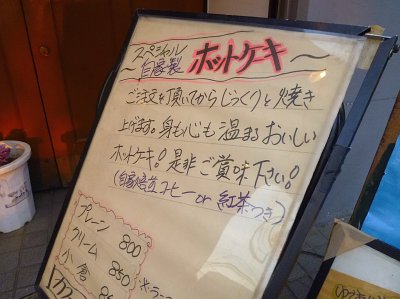 スペシャル
～自家製 ホットケーキ～
ご注文を頂いてからじっくりと焼き
上げます。身も心も温まるおいしい
ホットケーキ！是非ご賞味下さい！
(自家焙煎コーヒー or 紅茶つき)
プレーン 800
クリーム 850
小倉